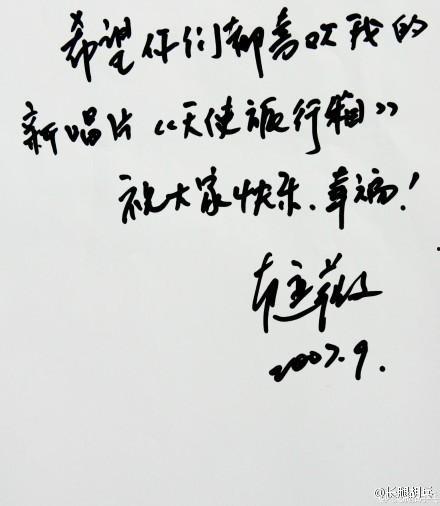 希望你们都喜欢我的
新唱片《天使旅行箱》
祝大家快乐、幸福!
2007.9.
@长腿胡兵